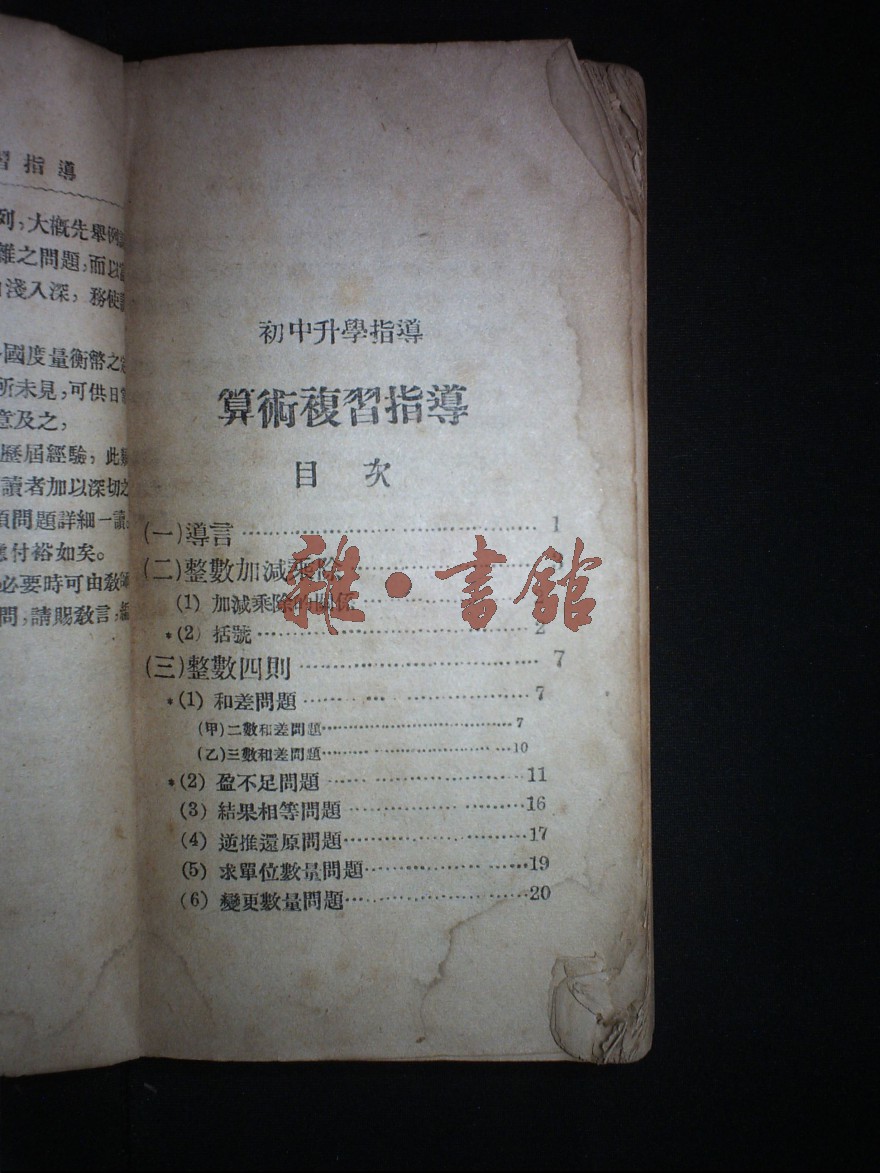 習指導
列，大概先舉例
難之問題，而以
淺入深，務使
國度量衡幣之
所未見，可供日
意及之，
歷屆經驗，此
讀者加以深切之
問題詳細一讀
應付裕如矣。
必要時可由教師
問，請賜教言，
初中升學指導
算術複習指導
目次
(一)導言 1
(二)整數加減乘除
(1) 加減乘除的關係
*(2) 括號 2
(三)整數四則 7
*(1) 和差問題 7
(甲)二數和差問題 7
(乙)三數和差問題 10
*(2) 盈不足問題 11
(3) 結果相等問題 16
(4) 逆推還原問題 17
(5) 求單位數量問題 19
(6) 變更數量問題 20
雜·書館